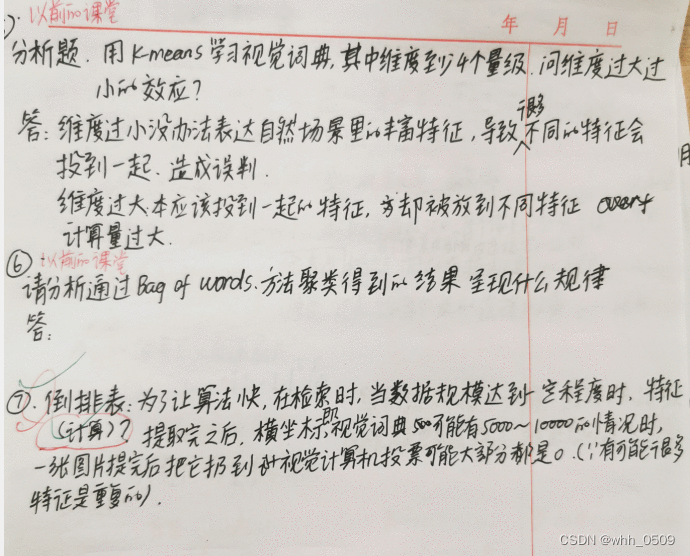 以前的课堂
年 月 日
分析题. 用K-means学习视觉词典,其中维度到少4个量级.问维度过大过
小的效应?
答:维度过小没办法表达自然场景里的丰富特征,导致很多不同的特征会
投到一起.造成误判.
维度过大.本应该投到一起的特征,却被放到不同特征
计算量过大.
⑥以前的课堂
请分析通过Bag of words.方法聚类得到的结果呈现什么规律
答:
⑦. 倒排表:为了让算法快,在检索时,当数据规模达到一定程度时,特征
(计算)? 提取完之后,横坐标即视觉词典可能有5000~10000的情况时,
一张图片提完后把它扔到 视觉计算机投票可能大部分都是0.(∵有可能很多
特征是重复的).
CSDN @whh_0509